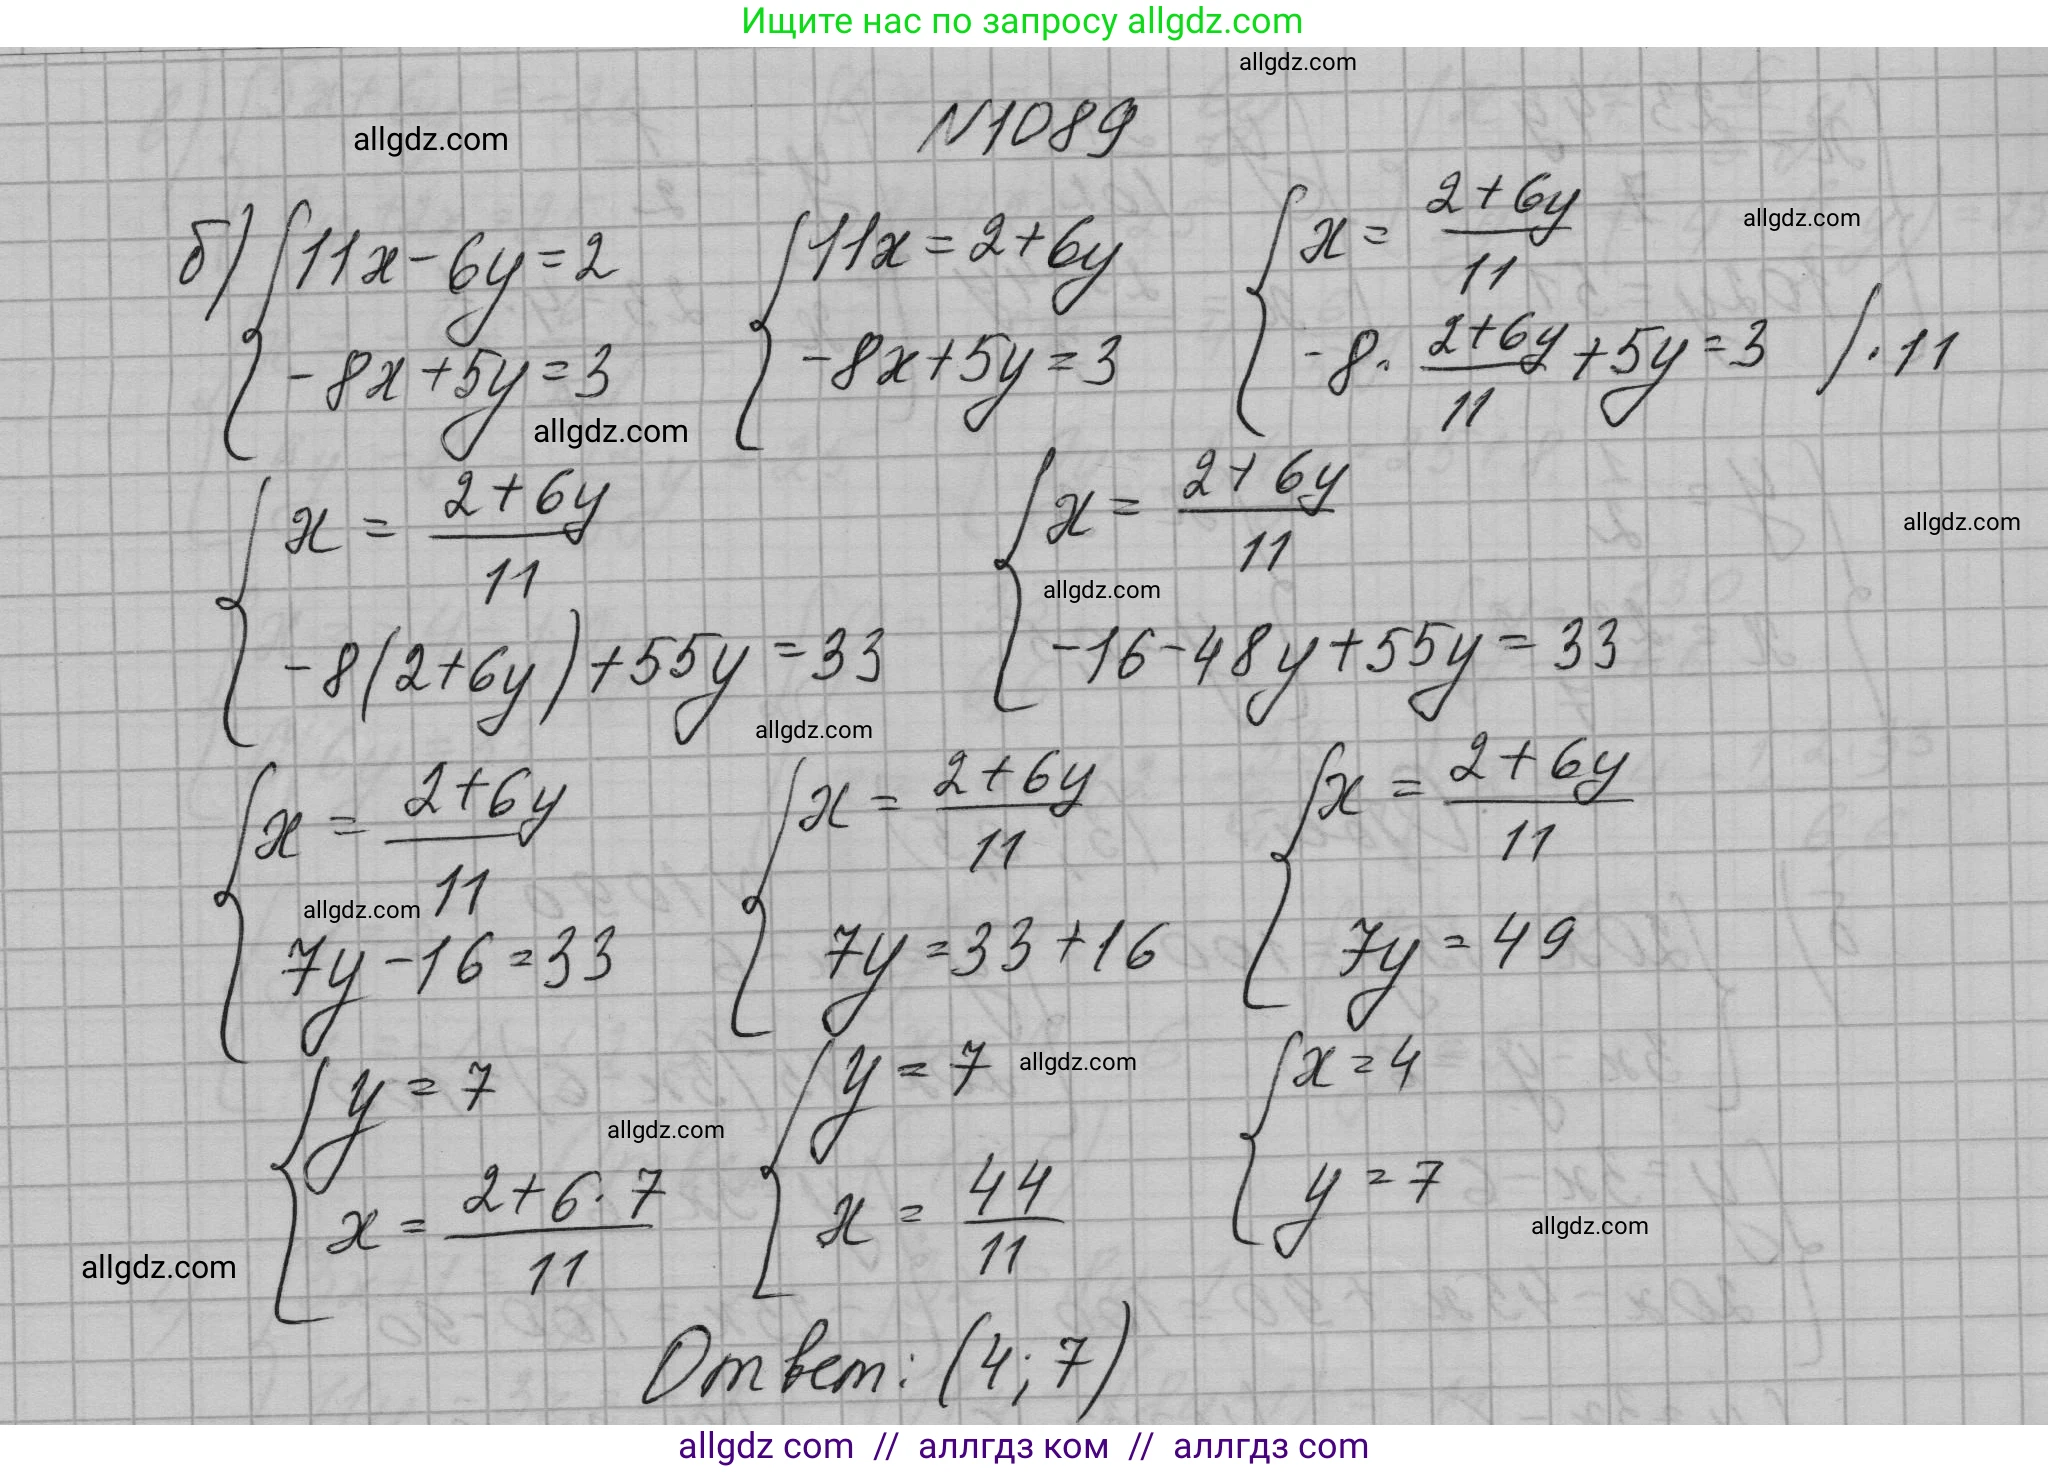 Ищите нас по запросу allgdz.com
allgdz.com
allgdz.com
N1089
б) { 11x - 6y = 2
-8x + 5y = 3
{ 11x = 2 + 6y
-8x + 5y = 3
{ x = (2 + 6y)/11
-8 · (2 + 6y)/11 + 5y = 3 / · 11
allgdz.com
allgdz.com
{ x = (2 + 6y)/11
-8(2 + 6y) + 55y = 33
{ x = (2 + 6y)/11
-16 - 48y + 55y = 33
allgdz.com
allgdz.com
allgdz.com
{ x = (2 + 6y)/11
7y - 16 = 33
{ x = (2 + 6y)/11
7y = 33 + 16
{ x = (2 + 6y)/11
7y = 49
allgdz.com
{ y = 7
x = (2 + 6 · 7)/11
{ y = 7
x = 44/11
{ x = 4
y = 7
allgdz.com
allgdz.com
allgdz.com
allgdz.com
Ответ: (4; 7)
allgdz com // аллгдз ком // аллгдз com